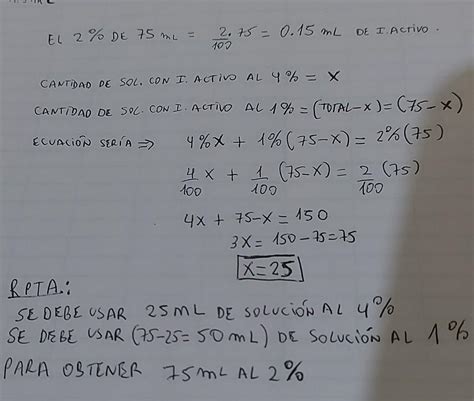 EL 2% DE 75 mL = 2.75/100 = 0.15 mL DE I. ACTIVO.
CANTIDAD DE SOL. CON I. ACTIVO AL 4% = X
CANTIDAD DE SOL. CON I. ACTIVO AL 1% = (TOTAL-X) = (75-X)
ECUACIÓN SERÍA ⇒ 4%X + 1%(75-X) = 2%(75)
4/100 X + 1/100 (75-X) = 2/100 (75)
4X + 75-X = 150
3X = 150-75=75
X=25
RPTA.:
SE DEBE USAR 25ML DE SOLUCIÓN AL 4%
SE DEBE USAR (75-25=50mL) DE SOLUCIÓN AL 1%
PARA OBTENER 75mL AL 2%